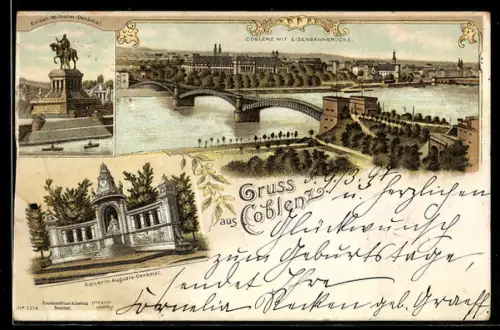 Kaiser-Wilhelm-Denkmal.
COBLENZ MIT EISENBAHNBRÜCKE.
Gruss
aus Coblenz
u. herzlichen
Glückwunsch
zum Geburtstage,
sendet Ihre
Cornelia geb. Graeff
Kaiserin-Augusta-Denkmal.